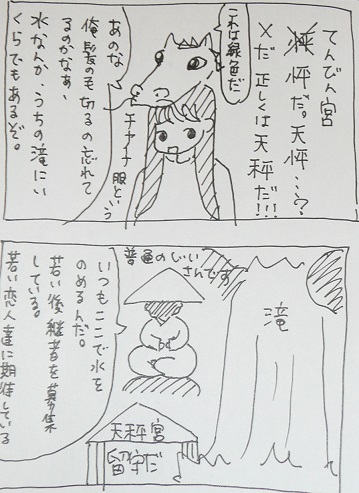 てんびん宮
怦だ。天怦…?
×だ正しくは天秤だ!!!
これは緑色だ
あのな
俺髪の毛切るの忘れて
るのかなあ、
水なんか、うちの滝にい
くらでもあるぞ。
チャイナ服という
滝
普通のじい
さんです
いつもここで水を
のめるんだ。
若い後継者を募集
している。
若い恋人達に期待している
天秤宮
留守だ